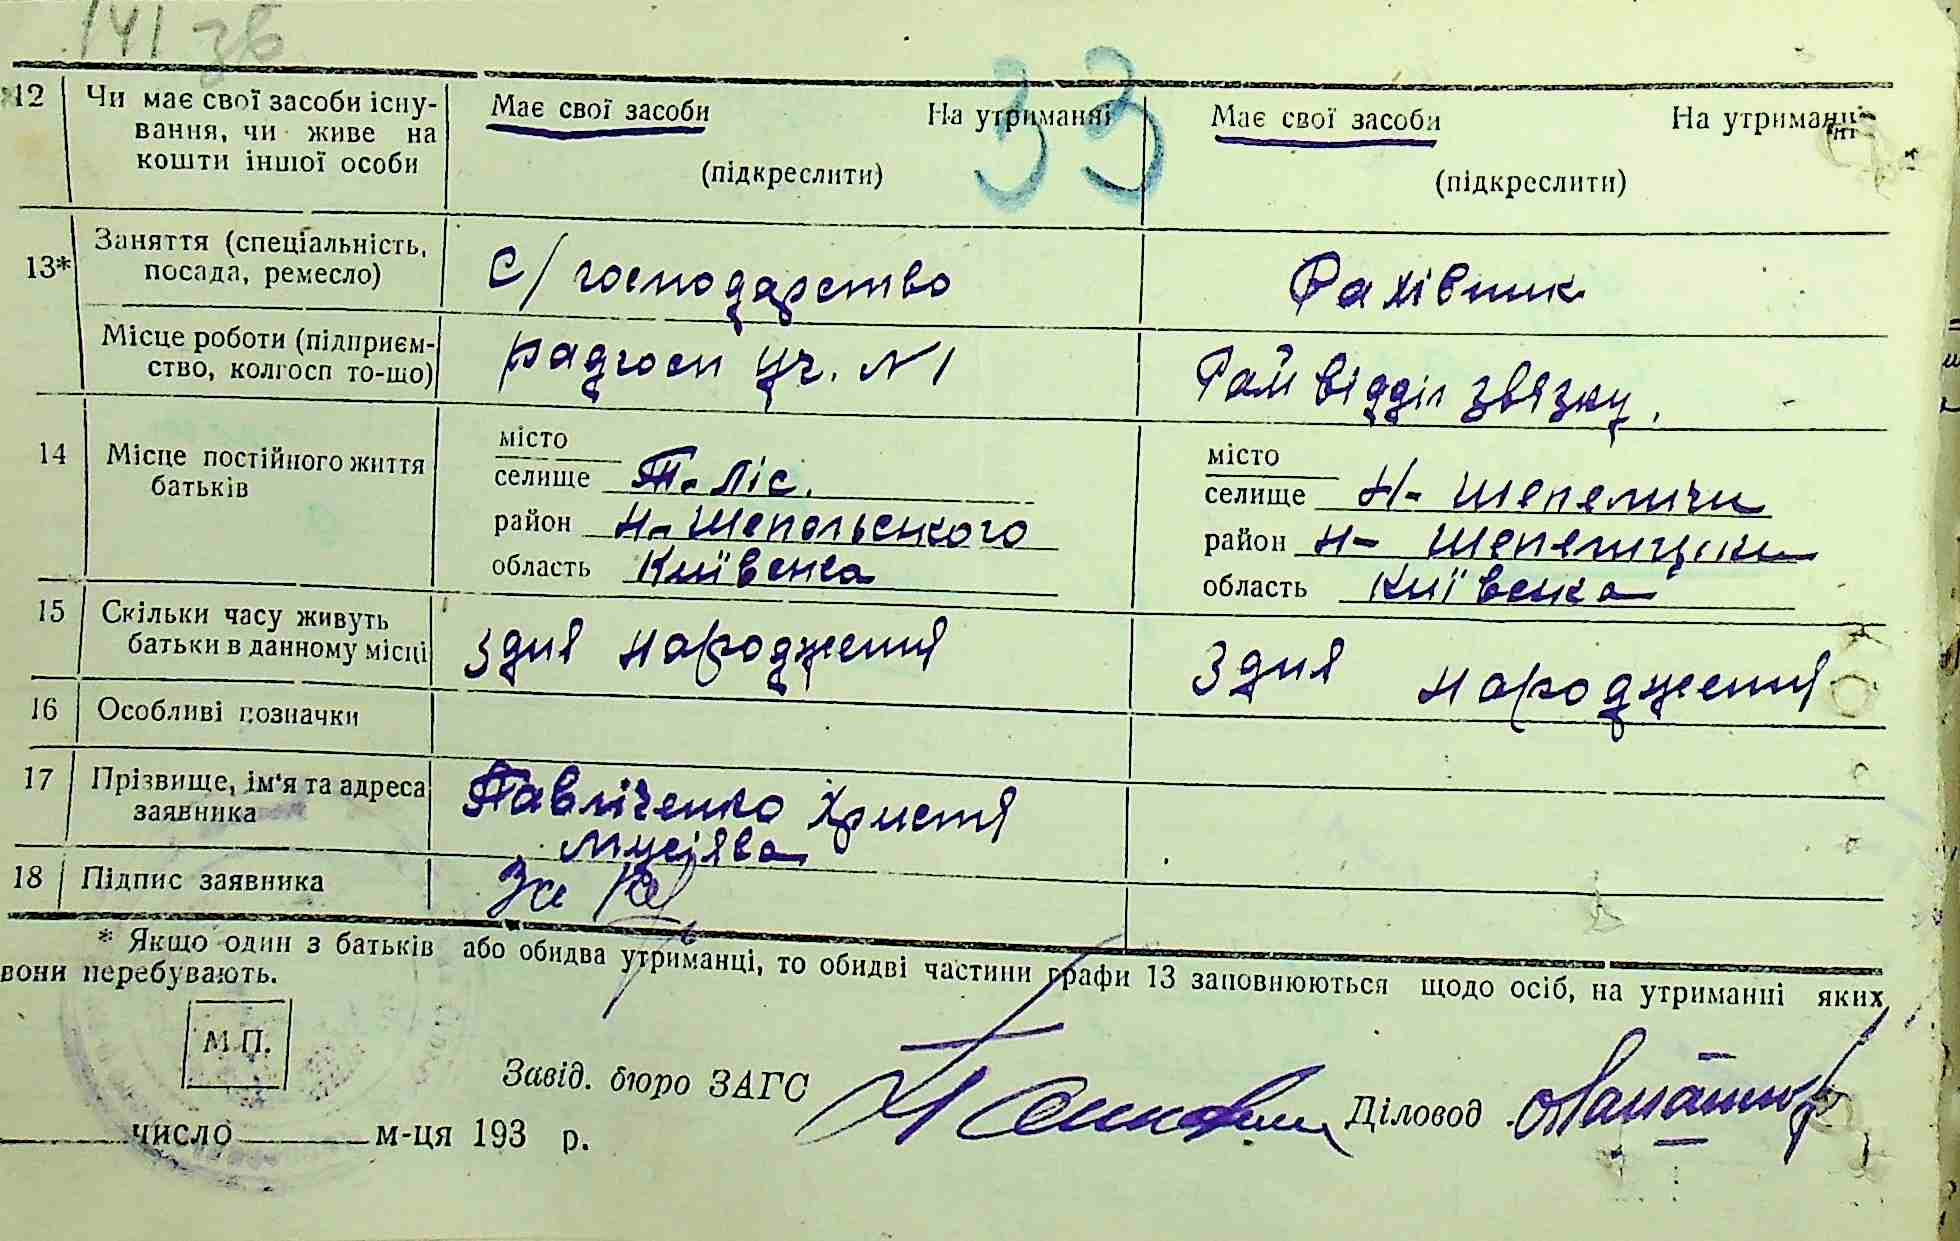 141 зв
33
12 Чи має свої засоби існу-
вання, чи живе на
кошти іншої особи
Має свої засоби На утриманні
(підкреслити)
Має свої засоби На утриманні
(підкреслити)
13* Заняття (спеціальність,
посада, ремесло)
С/господарство
Рахівник
Місце роботи (підприєм-
ство, колгосп то-що)
радгосп уч. №1
Рай відділ звязку.
14 Місце постійного життя
батьків
місто
селище Т-Ліс.
район Н-Шепельського
область Київська
місто
селище Н-Шепеличи
район Н-
область Київська
15 Скільки часу живуть
батьки в данному місці
З дня народження
З дня народження
16 Особливі позначки
17 Прізвище, ім'я та адреса
заявника
Павліченко Христя
Мусіява
18 Підпис заявника
За
* Якщо один з батьків або обидва утриманці, то обидві частини графи 13 заповнюються щодо осіб, на утриманні яких
вони перебувають.
М.П.
Завід. бюро ЗАГС
Діловод
число м-ця 193 р.